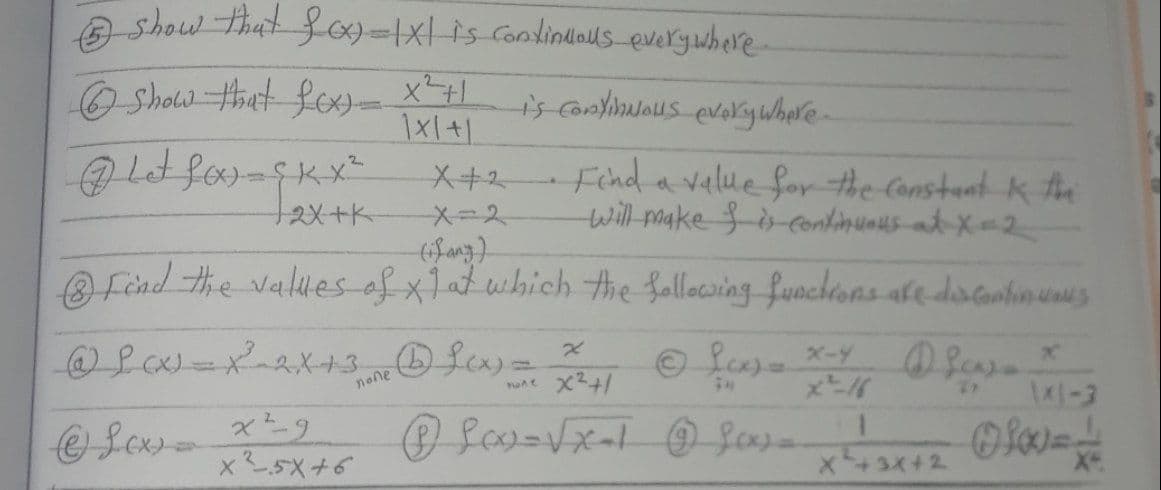 ⑤ show that f(x)=|x| is continuous everywhere.
⑥ show that f(x) = x²+1 / |x|+1 is continuous everywhere.
⑦ Let f(x) = { kx²  x≠2 . Find a value for the constant k tha
2x+k  x=2  will make f is continuous at x=2
(if any)
⑧ Find the values of x at which the following functions are discontinuous
ⓐ f(x) = x³-2x+3 none ⓑ f(x) = x / x²+1 none ⓒ f(x) = x-4 / x²-16 ±4 ⓓ f(x) = x / |x|-3
ⓔ f(x) = x²-9 / x²-5x+6 ⓕ f(x)=√x-1 ⓖ f(x) = 1 / x²+3x+2 f(x)=